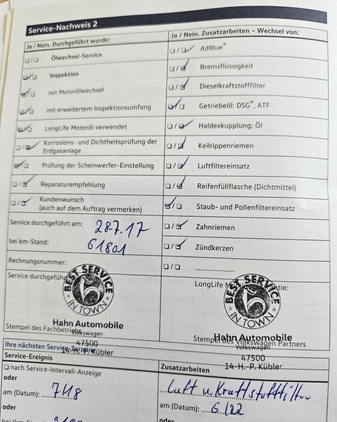 Service-Nachweis 2
Ja / Nein. Durchgeführt wurde:
Ölwechsel-Service
Inspektion
mit Motorölwechsel
mit erweitertem Inspektionsumfang
LongLife Motoröl verwendet
Korrosions- und Dichtheitsprüfung der
Erdgasanlage
Prüfung der Scheinwerfer-Einstellung
Reparaturempfehlung
Kundenwunsch
(auch auf dem Auftrag vermerken)
Service durchgeführt am: 28.7.17
bei km-Stand: 61801
Rechnungsnummer:
Service durchgeführt
BEST SERVICE
IN TOWN
Hahn Automobile
Volkswagen
Stempel des Fachbetriebs
47500
14-H.-P. Kübler
Ja / Nein. Zusatzarbeiten – Wechsel von:
AdBlue®
Bremsflüssigkeit
Dieselkraftstofffilter
Getriebeöl: DSG®, ATF
Haldexkupplung: Öl
Keilrippenriemen
Luftfiltereinsatz
Reifenfüllflasche (Dichtmittel)
Staub- und Pollenfiltereinsatz
Zahnriemen
Zündkerzen
LongLife
BEST SERVICE
IN TOWN
Hahn Automobile
Stempel des Volkswagen Partners
47500
14-H.-P. Kübler
Ihre nächsten Service-
Service-Ereignis
nach Service-Intervall-Anzeige
oder
am (Datum): 7/18
oder
Zusatzarbeiten
Luft u. Kraftstofffilter
am (Datum): 6/22
oder